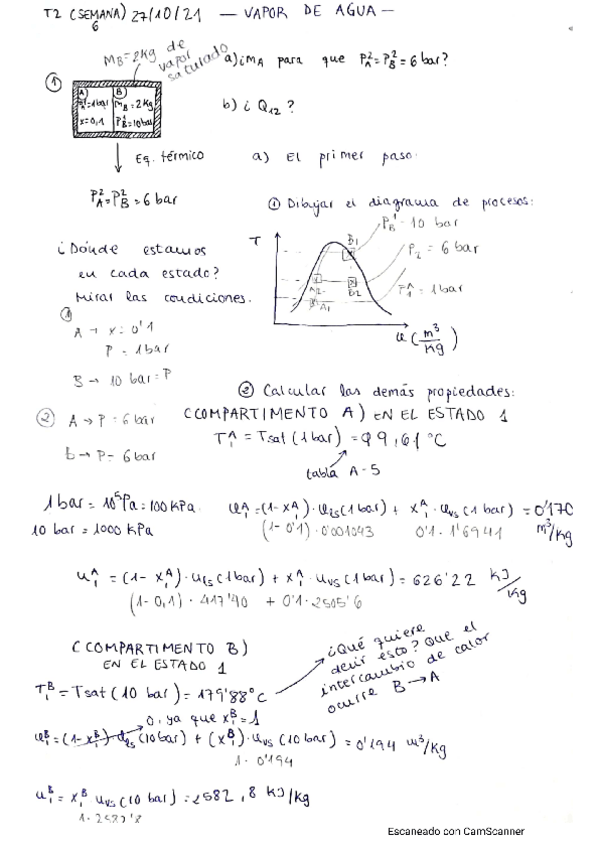 T2 (SEMANA) 27/10/21 — VAPOR DE AGUA —
6
MB=2kg de vapor saturado
a)¿mA para que P²A=P²B=6 bar?
①
A B
P¹A=1bar MB=2Kg
x=0,1 P¹B=10bar
b) ¿ Q12 ?
Eq. térmico
a) El primer paso:
P²A=P²B=6 bar
① Dibujar el diagrama de procesos:
P¹B=10 bar
T
B1
P2 = 6 bar
A2 B2
P¹A = 1bar
A1
(m³/Kg)
¿Dónde estamos
en cada estado?
Mirar las condiciones.
①
A → x=0'1
P = 1bar
B → 10 bar=P
② Calcular las demás propiedades:
② A → P=6 bar
(COMPARTIMENTO A) EN EL ESTADO 1
b → P=6bar
T₁ᴬ = Tsat (1bar) = 99,61 °C
tabla A-5
1bar = 10⁵Pa=100KPa
10 bar = 1000 KPa
υ₁ᴬ=(1-x₁ᴬ)·υls(1bar) + x₁ᴬ·υvs(1bar) = 0'170 m³/Kg
(1-0'1)·0'001043 0'1·1'6941
u₁ᴬ = (1-x₁ᴬ)·uls(1bar) + x₁ᴬ·uvs(1bar) = 626'22 KJ/Kg
(1-0,1)·417'40 + 0'1·2505'6
(COMPARTIMENTO B)
EN EL ESTADO 1
¿Qué quiere
decir esto? Que el
intercambio de calor
ocurre B→A
T₁ᴮ = Tsat (10 bar) = 179'88°C
0, ya que x₁ᴮ=1
υ₁ᴮ=(1-x₁ᴮ)·υls(10bar) + (x₁ᴮ)·υvs(10bar) = 0'194 m³/Kg
1·0'194
u₁ᴮ = x₁ᴮ uvs(10 bar) = 2582,8 KJ/Kg
Escaneado con CamScanner